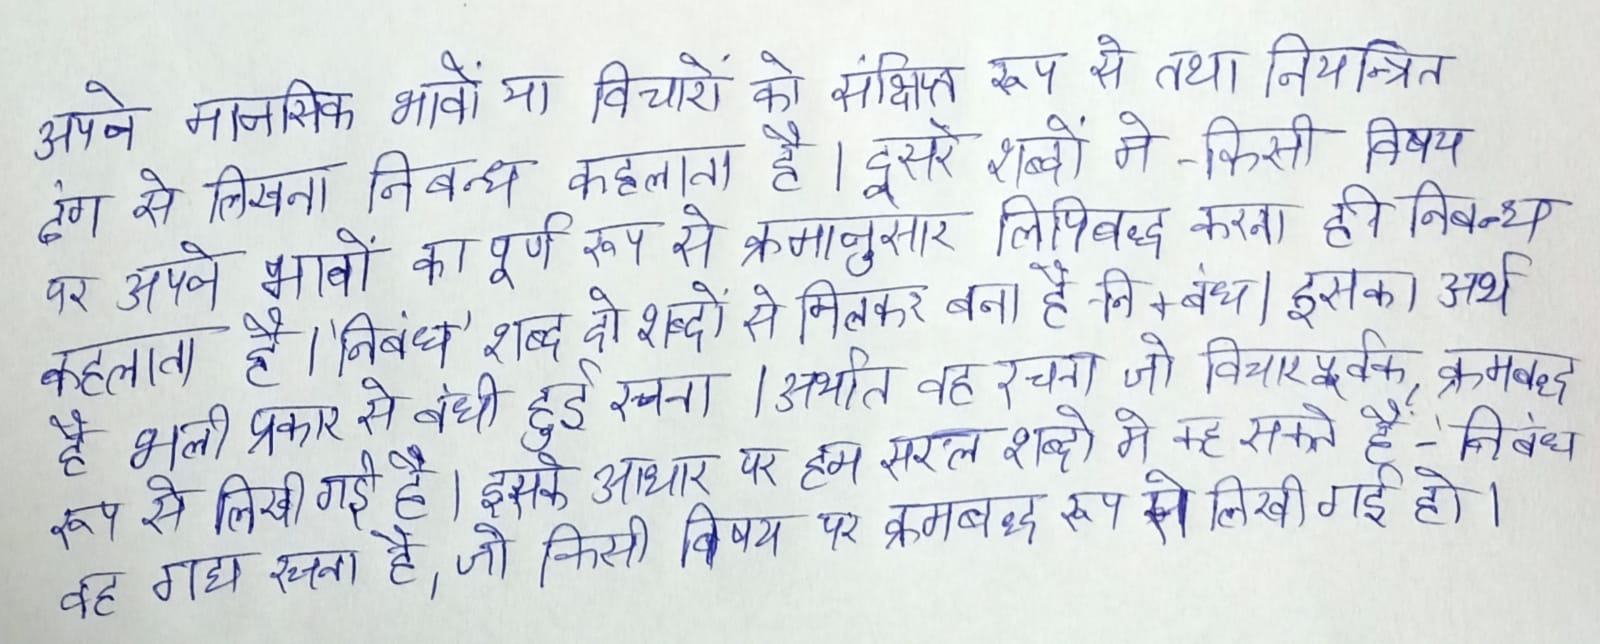 अपने मानसिक भावों या विचारों को संक्षिप्त रूप से तथा नियन्त्रित
ढंग से लिखना निबन्ध कहलाता है। दूसरे शब्दों मे - किसी विषय
पर अपने भावों का पूर्ण रूप से क्रमानुसार लिपिबद्ध करना ही निबन्ध
कहलाता है। 'निबंध' शब्द दो शब्दों से मिलकर बना है - नि + बंध। इसका अर्थ
है भली प्रकार से बंधी हुई रचना। अर्थात वह रचना जो विचारपूर्वक, क्रमबद्ध
रूप से लिखी गई है। इसके आधार पर हम सरल शब्दो मे कह सकते हैं - 'निबंध
वह गद्य रचना है, जो किसी विषय पर क्रमबद्ध रूप से लिखी गई हो।